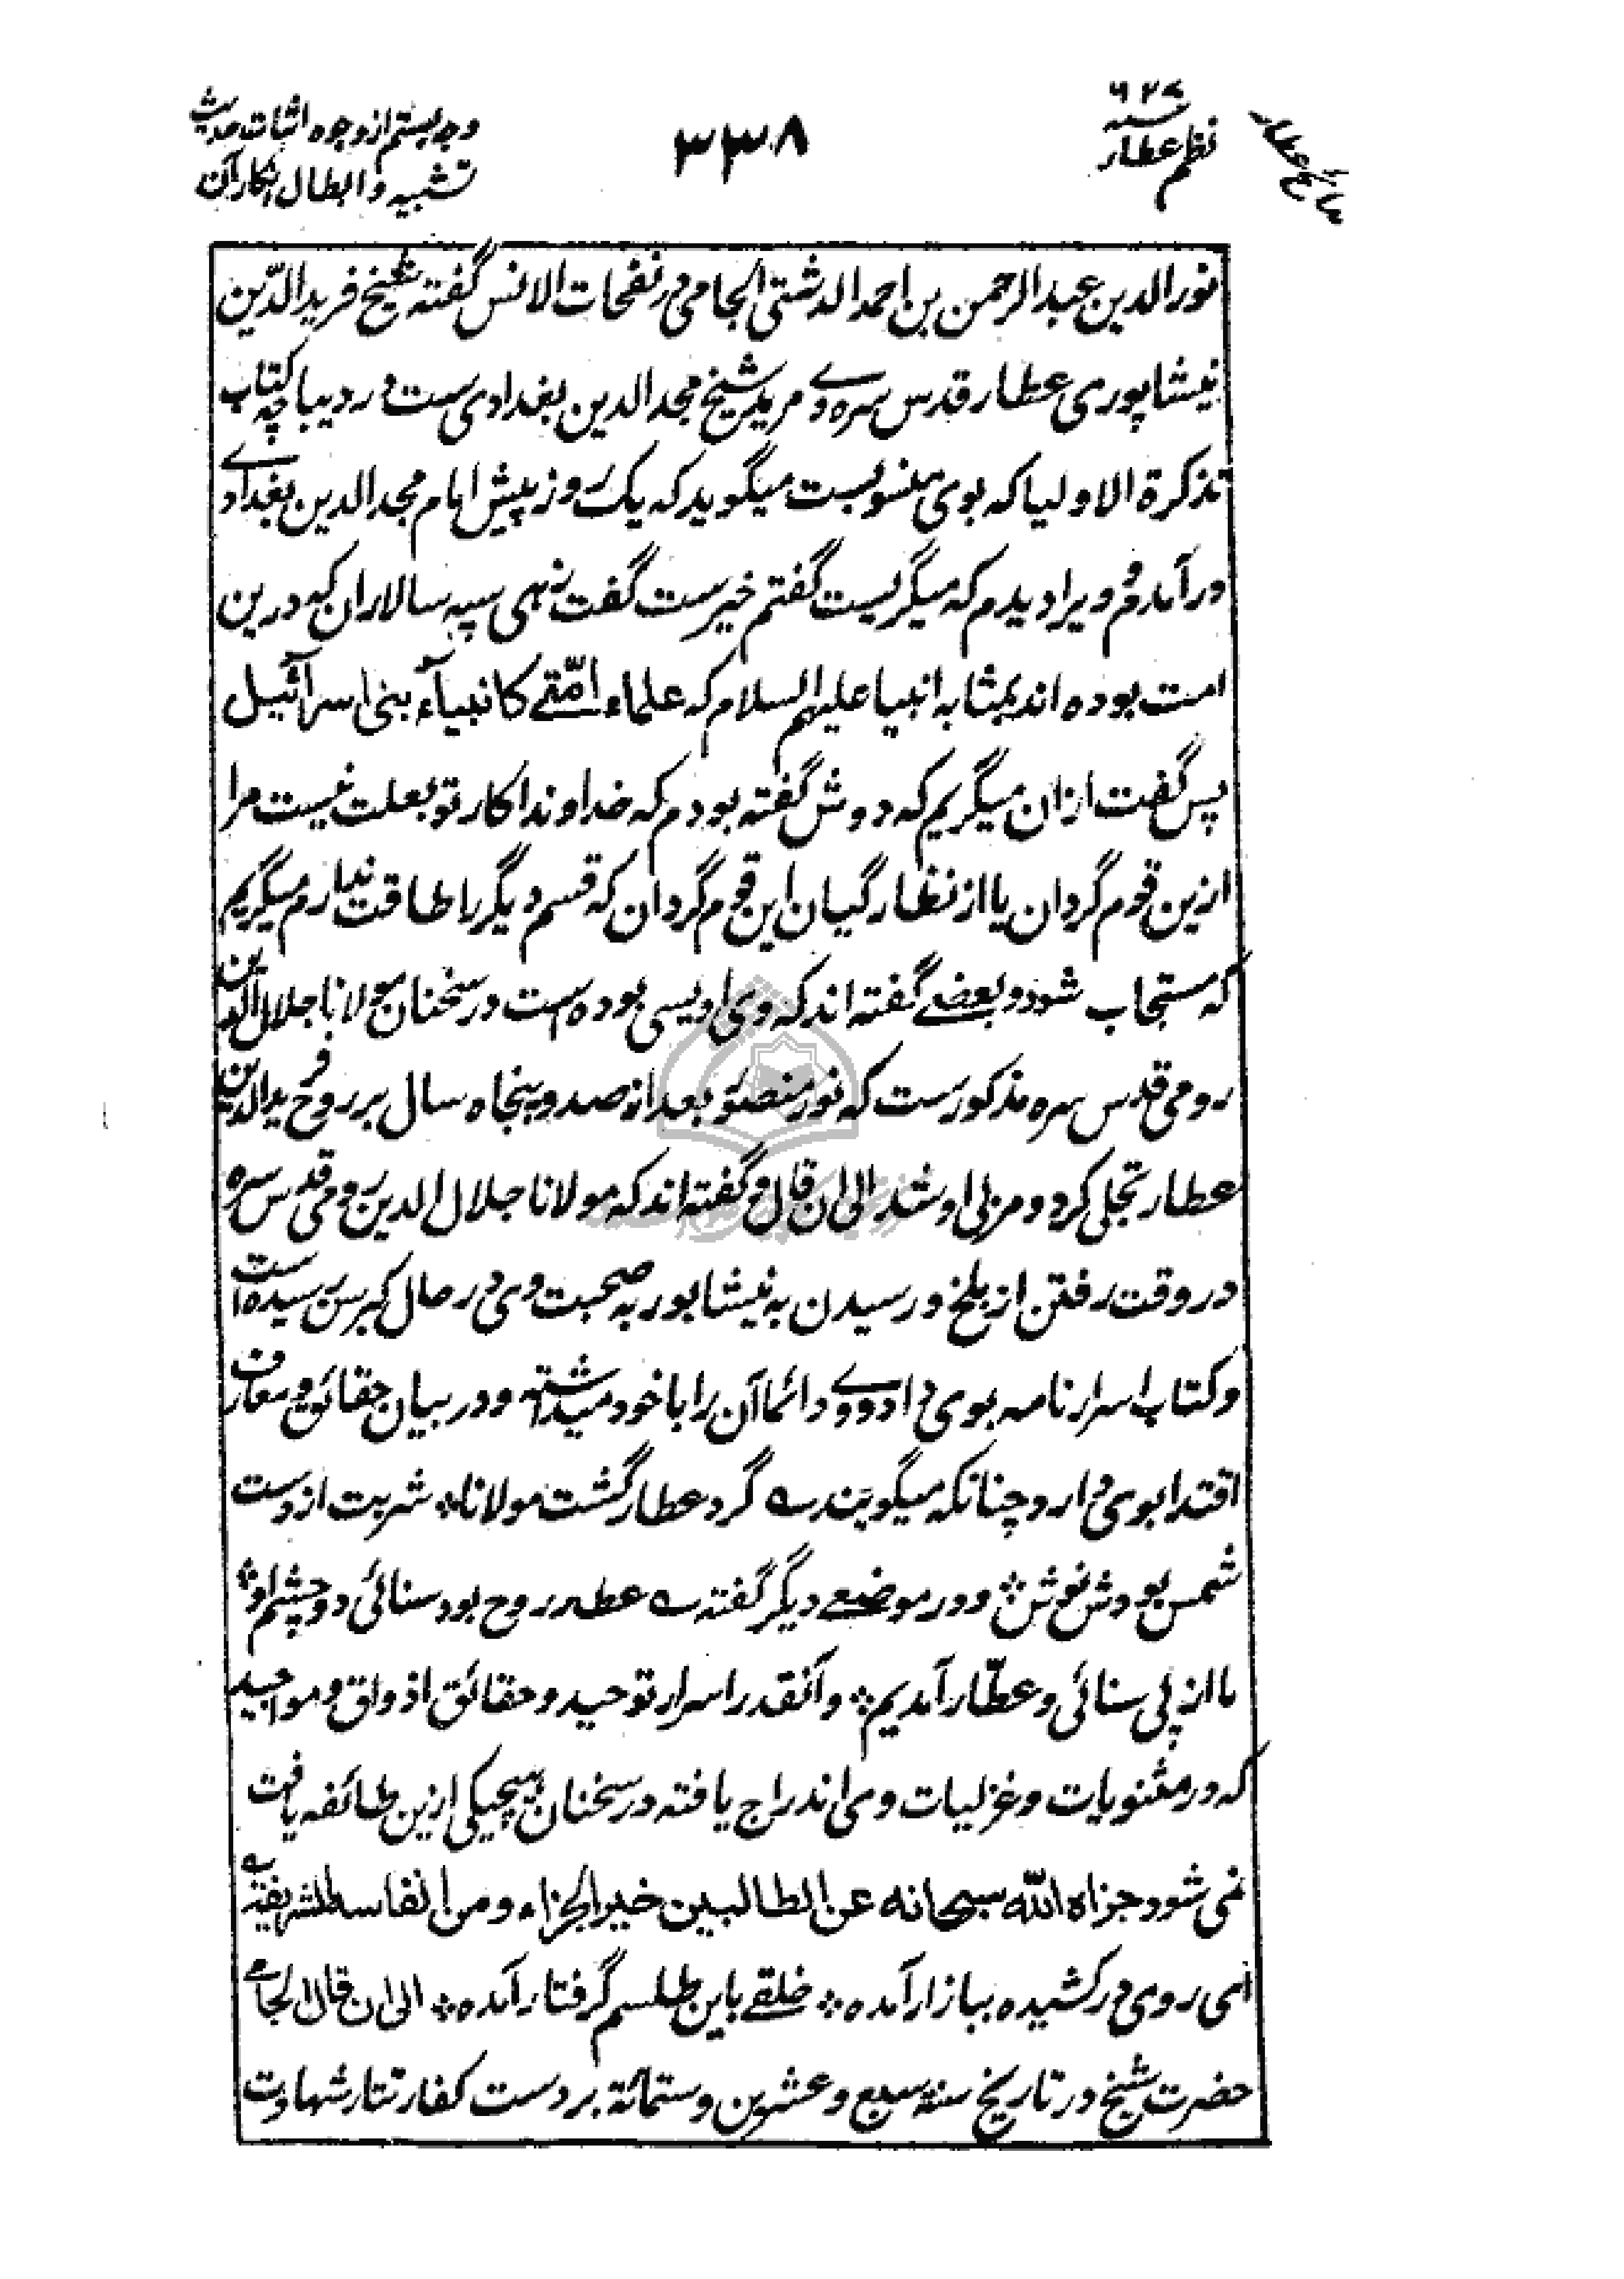 ۶۲۷
نظم عطار
مدائح عطار
۳۳۸
وجه بستم از وجوه اثبات حدیث
تشبیه و ابطال انکار آن
نورالدین عبدالرحمن بن احمد الدشتی الجامی در نفحات الانس گفته شیخ فریدالدّین
نیشاپوری عطار قدس سره وے مرید شیخ مجدالدین بغدادی ست در دیباچه کتاب
تذکرة الاولیا که بوی منسوبست میگوید که یک روز پیش امام مجدالدین بغدادے
درآمدم و ویرا دیدم که میگریست گفتم خیرست گفت زهی سپه سالاران که درین
امت بوده اند بمثابه انبیا علیهم السلام که علماء امّتے کانبیآء بنی اسرآئیل
پس گفت ازان میگریم که دوش گفته بودم که خداوندا کار تو بعلت نیست مرا
ازین قوم گردان یا از نظارگیان این قوم گردان که قسم دیگر را طاقت ندارم میگریم
که مستجاب شود و بعضے گفته اند که وی اویسی بوده است در سخنان مولانا جلال الدین
رومی قدس سره مذکورست که نور منصور بعد از صد و پنجاه سال بر روح فریدالدین
عطار تجلی کرد و مربی او شد الی ان قال و گفته اند که مولانا جلال الدین رومی قدس سره
در وقت رفتن از بلخ و رسیدن به نیشابور به صحبت وی در حال کبر سن رسیده است
و کتاب اسرارنامه بوی داد و وے دائما آن را با خود میداشته و در بیان حقائق و معارف
اقتدا بوی دارد چنانکه میگویند ے گرد عطار گشت مولانا ٭ شربت از دست
شمس بودش نوش ٭ و در موضعے دیگر گفته ے عطار روح بود سنائی دو چشم او ٭
ما از پی سنائی و عطّار آمدیم ٭ و آنقدر اسرار توحید و حقائق اذواق و مواجید
که در مثنویات و غزلیات وی اندراج یافته در سخنان هیچیکی ازین طائفه یافت
نمی شود جزاه اللّه سبحانه عن الطالبین خیر الجزاء و من انفاسه الشریفة ے
ای روی در کشیده ببازار آمده ٭ خلقے باین طلسم گرفتار آمده ٭ الی ان قال الجامے
حضرت شیخ در تاریخ سنة سبع و عشرین و ستمائة بر دست کفار تتار شهادت